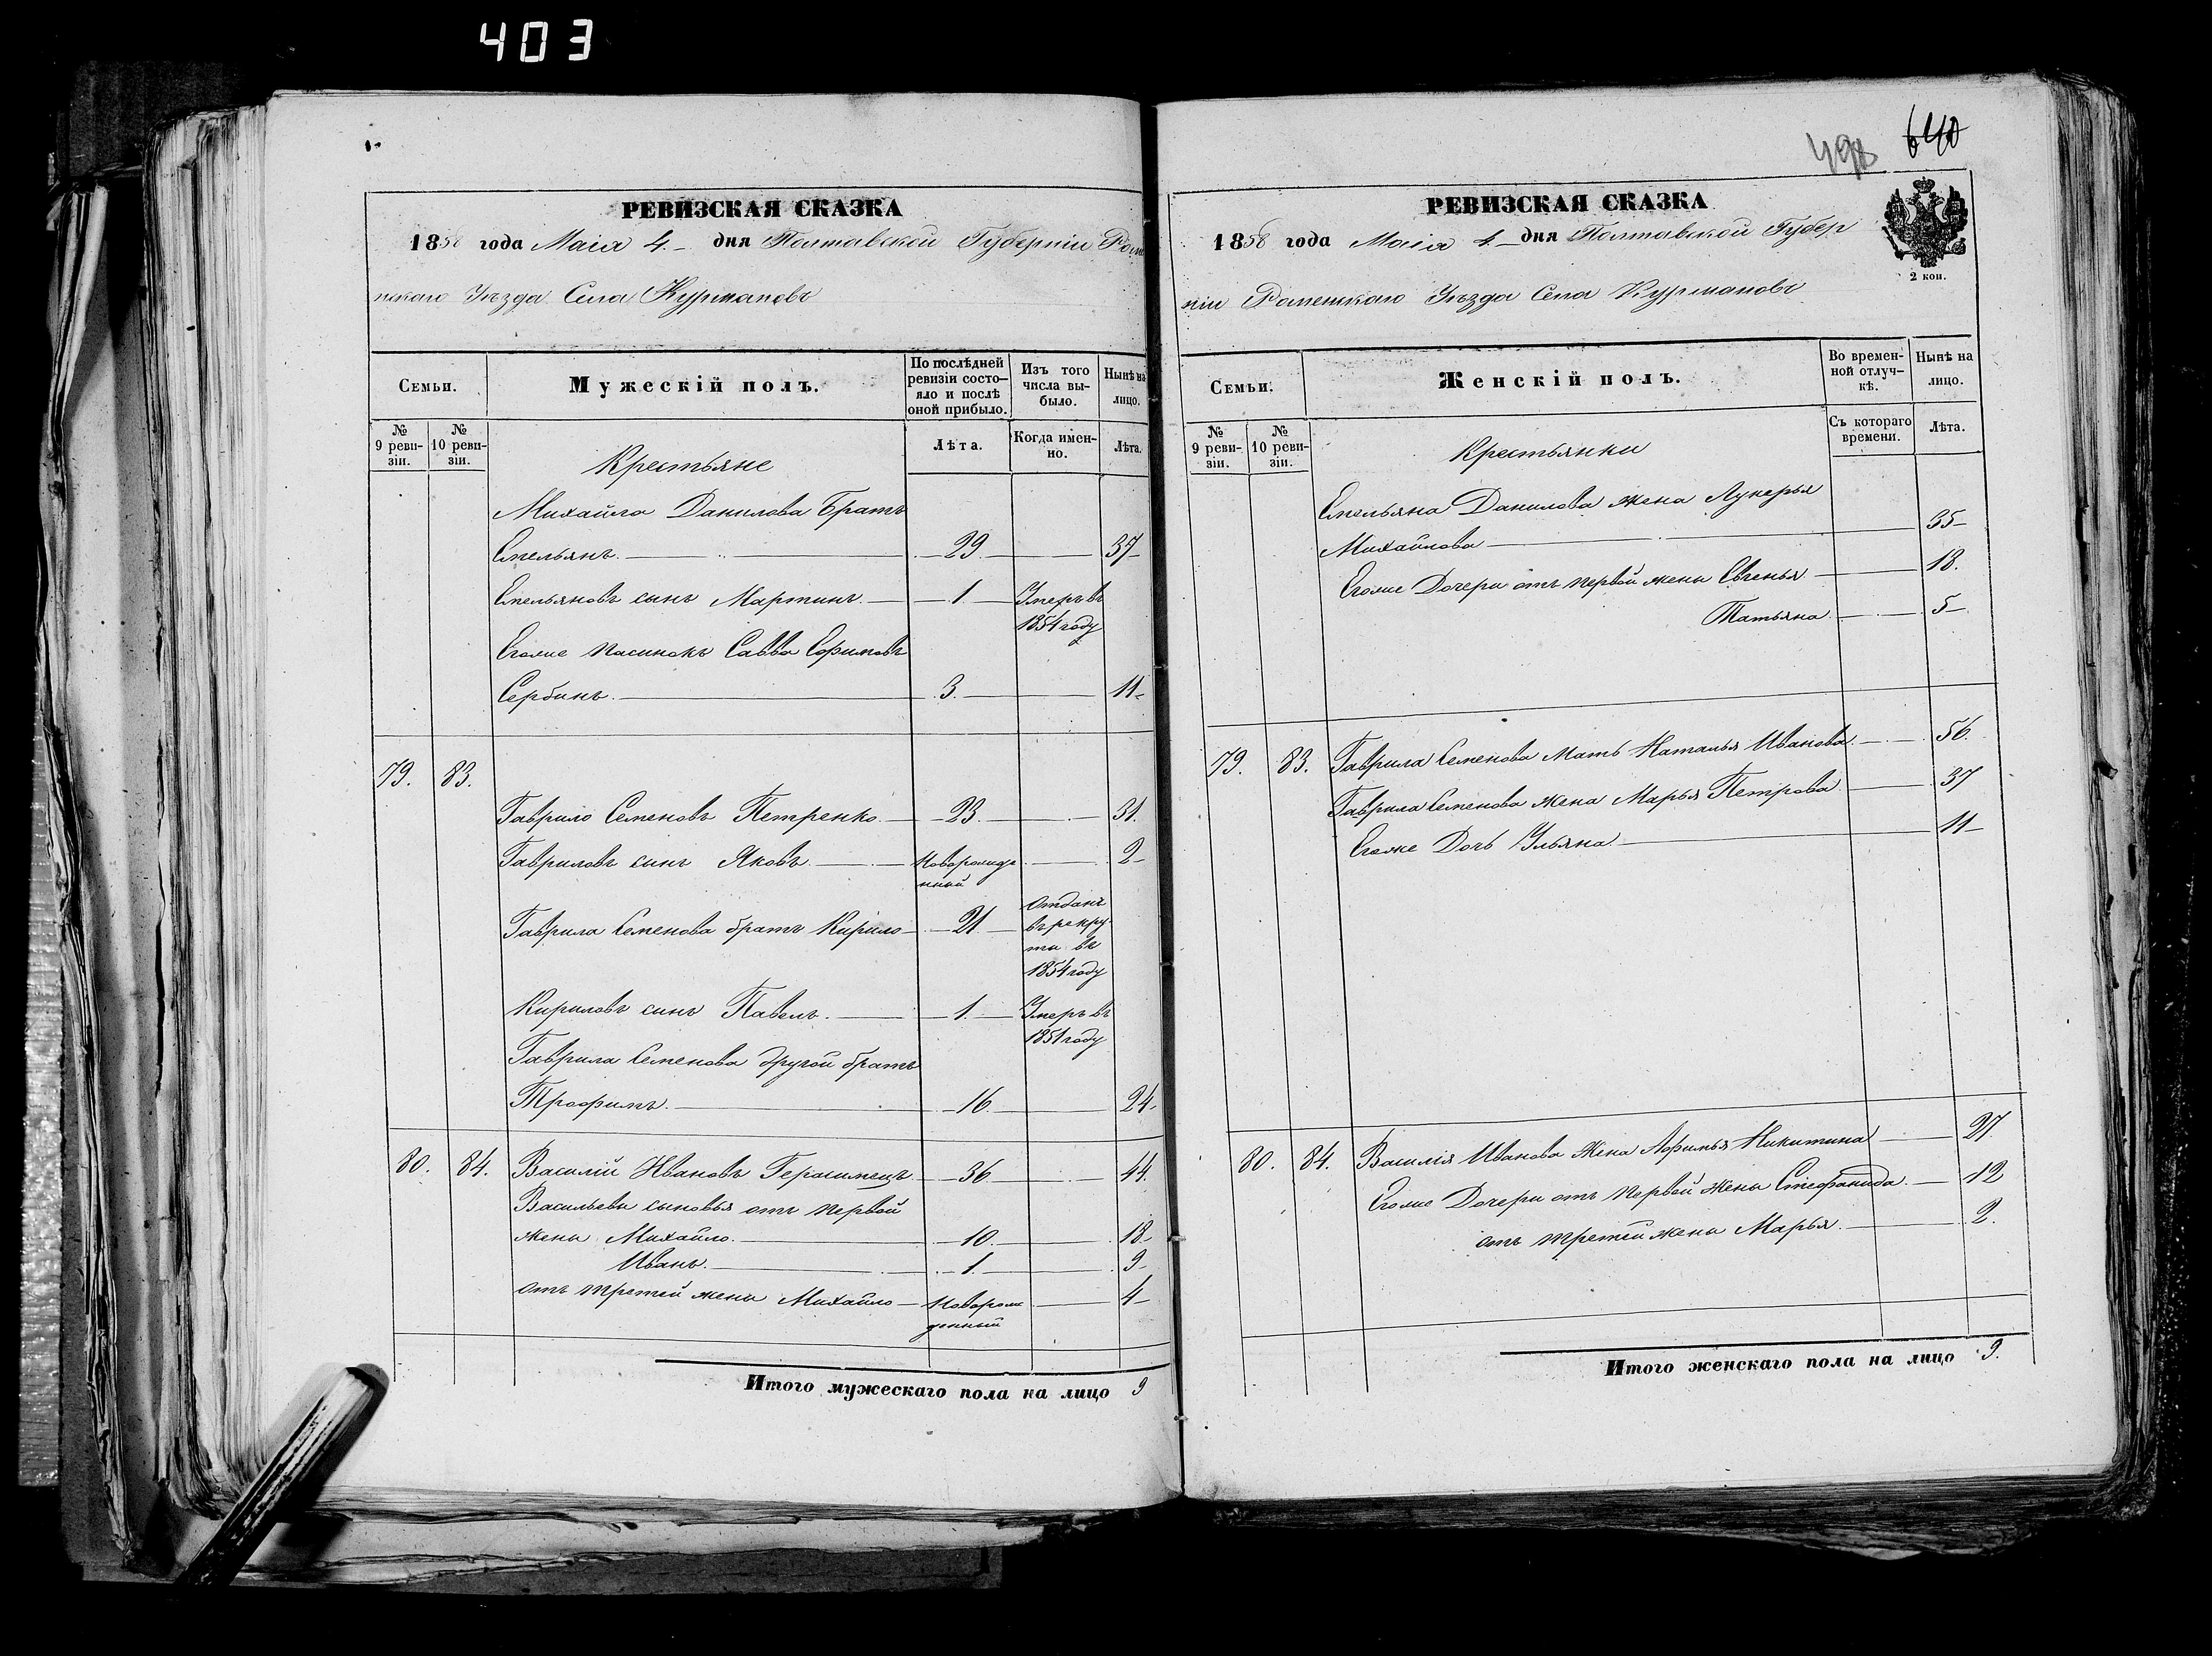 403
РЕВИЗСКАЯ СКАЗКА
1858 года Маія 4. дня Полтавской Губерніи Роме
нскаго Уѣзда Села Курмановъ
Семьи.
Мужескій полъ.
По послѣдней ревизіи состо-яло и послѣ оной прибыло.
Изъ того числа вы-было.
Нынѣ на лицо.
№ 9 реви-зіи.
№ 10 реви-зіи.
Лѣта.
Когда имен-но.
Лѣта.
Крестьяне
Михайла Данилова Братъ
Емельянъ. 29 37
Емельяновъ сынъ Мартинъ. 1 Умеръ въ
1854 году
Егоже пасинокъ Савва Ефимовъ
Сербинъ. 3. 11
79. 83.
Гаврило Семеновъ Петренко. 23 31.
Гавриловъ синъ Яковъ. Новорожде 2
нный
Гаврила Семенова братъ Кирило 21 Отданъ
въ рекру-
ты въ
1854 году
Кириловъ синъ Павелъ. 1. Умеръ въ
1851 году
Гаврила Семенова другой братъ
Трофимъ. 16 24
80. 84. Василій Ивановъ Герасимецъ 36 44.
Васильевы сыновья отъ первой
жены Михайло. 10. 18
Иванъ. 1. 9
отъ третей жены Михайло Новорож 4
денный
Итого мужескаго пола на лицо 9
498 640
РЕВИЗСКАЯ СКАЗКА
1858 года Маія 4 дня Полтавской Губер
2 коп.
ніи Роменскаго Уѣзда Села Курмановъ
Семьи.
Женскій полъ.
Во времен-ной отлуч-кѣ.
Нынѣ на лицо.
№ 9 реви-зіи.
№ 10 реви-зіи.
Съ котораго времени.
Лѣта.
Крестьянки
Емельяна Данилова жена Лукерья
Михайлова 35
Егоже Дочери отъ первой жены Евгенья 18.
Татьяна 5
79. 83. Гаврила Семенова Мать Наталья Иванова 56.
Гаврила Семенова жена Марья Петрова 37
Егоже Дочь Ульяна 11
80. 84. Василія Иванова Жена Афимья Никитина 27
Егоже Дочери отъ первой жены Стефанида. 12
отъ третей жены Марья. 2.
Итого женскаго пола на лицо 9.